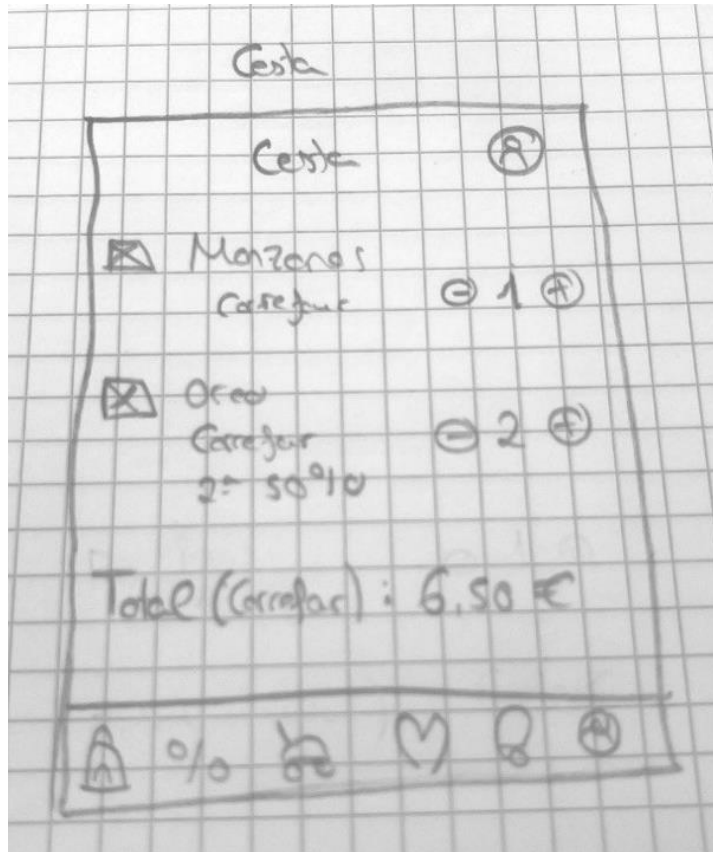 Cesta
Cesta
Manzanas
Carrefour
1
Oreo
Carrefour
2
2ª 50%
Total (Carrefour): 6,50 €
%